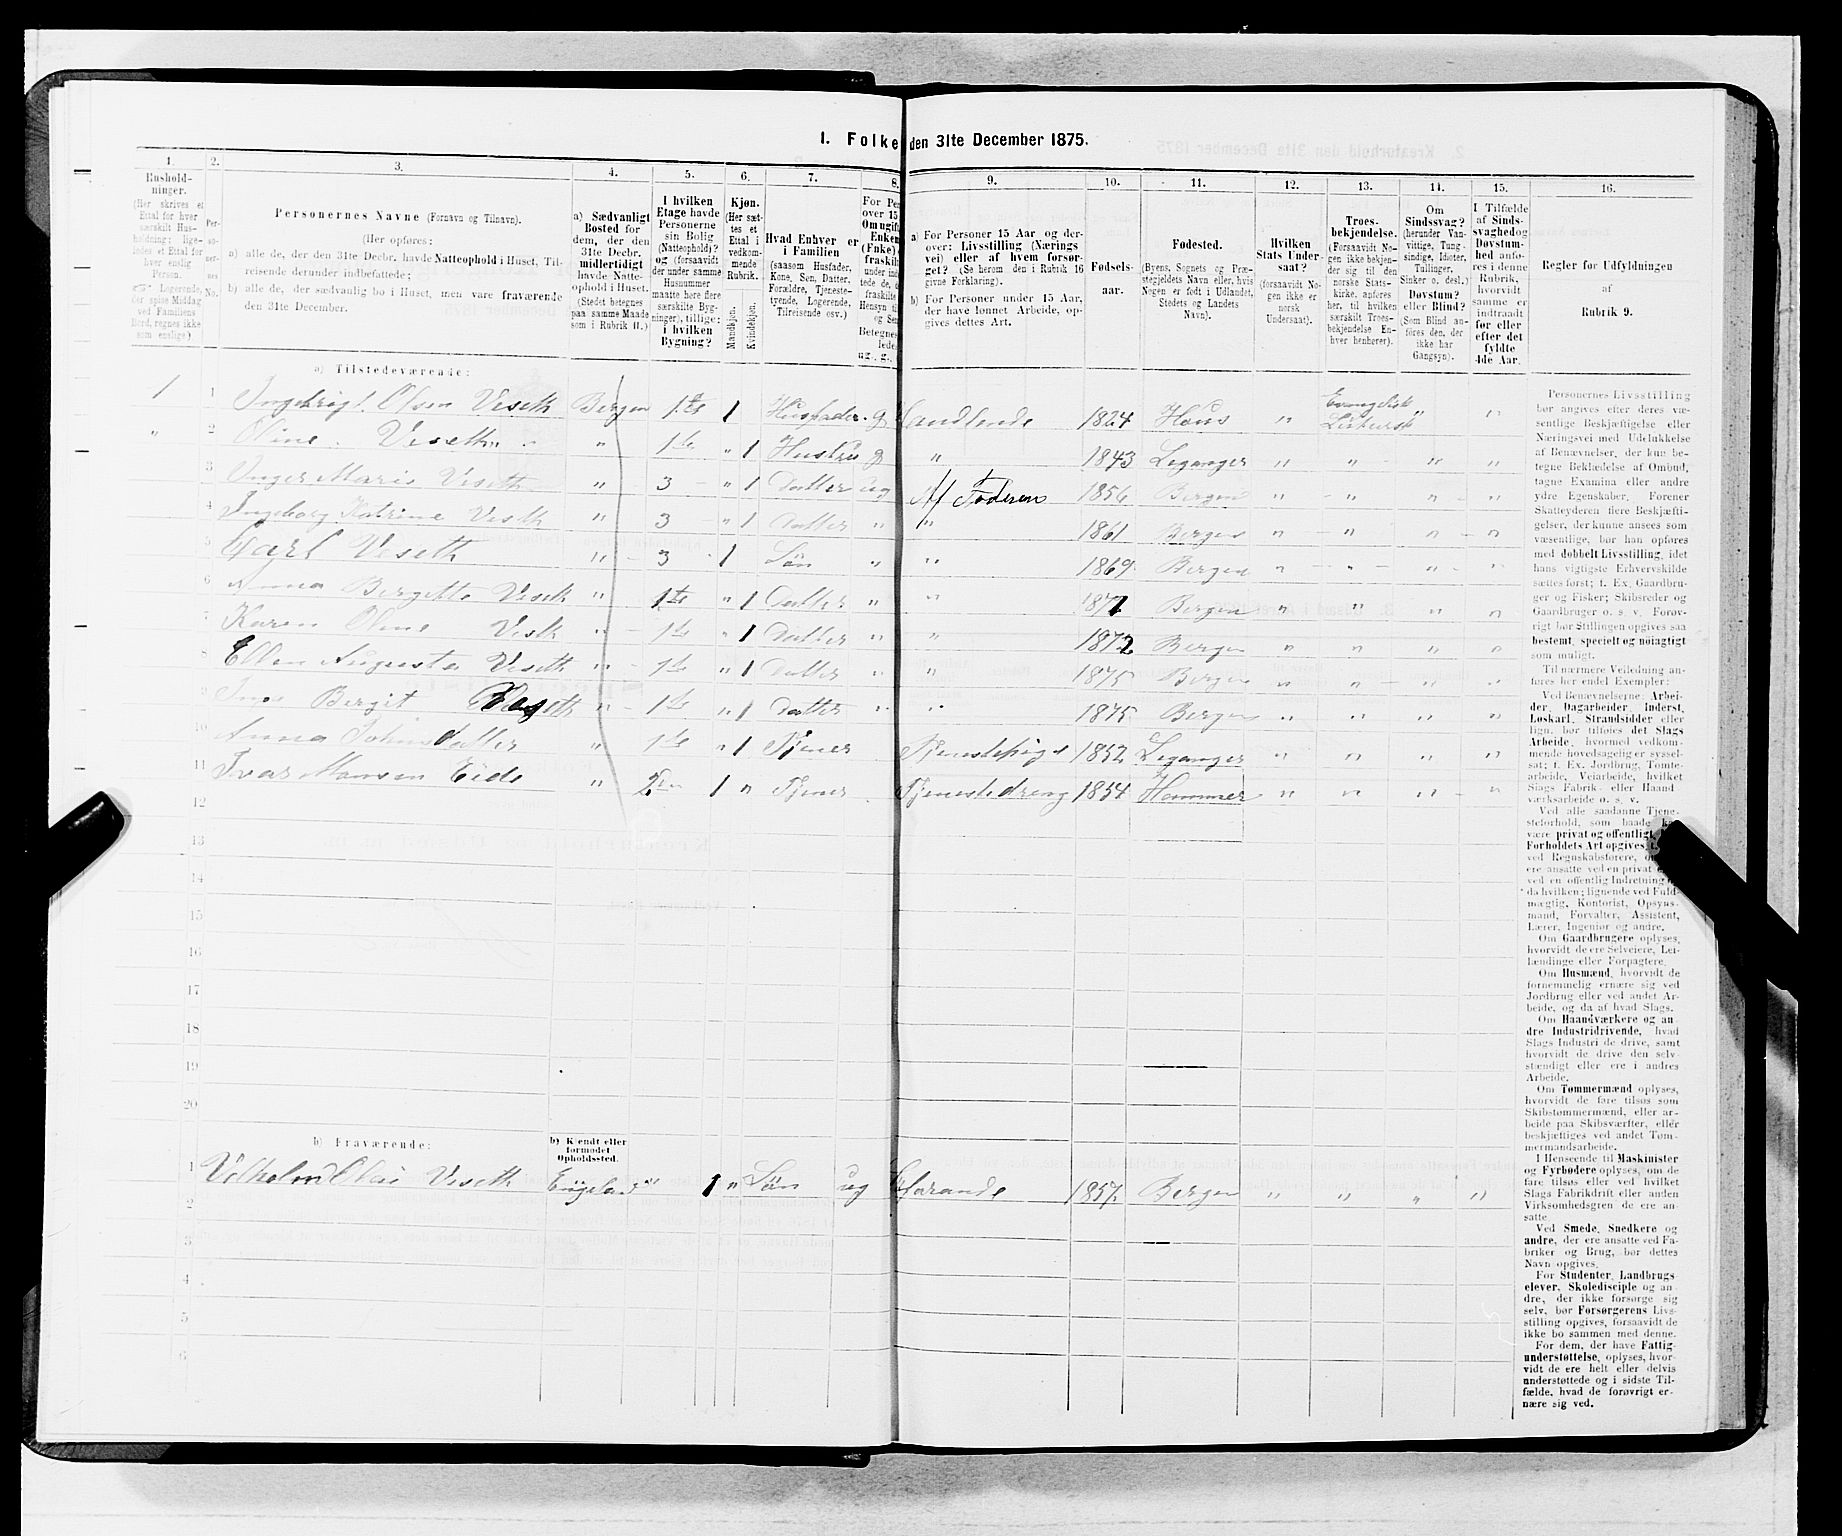 1. Folke den 31te December 1875.
1. 2. 3. 4. 5. 6. 7. 8. 9. 10. 11. 12. 13. 14. 15. 16.
Husholdninger.
(Her skrives et Ettal for hver særskilt Husholdning; ligeledes et Ettal for hver enslig Person.
Logerende, der spise Middag ved Familiens Bord, regnes ikke som enslige.)
Personernes No.
Personernes Navne (Fornavn og Tilnavn).
(Her opføres:
a) alle de, der den 31te Decbr. havde Natteophold i Huset, Tilreisende derunder indbefattede;
b) alle de, der sædvanlig bo i Huset, men vare fraværende den 31te December.
a) Sædvanligt Bosted for dem, der den 31te Decbr. midlertidigt havde Natteophold i Huset.
(Stedet betegnes paa samme Maade som i Rubrik 11.)
I hvilken Etage havde Personerne sin Bolig (Natteophold)? og (forsaavidt der under samme Husnummer maatte høre flere særskilte Bygninger), tillige: i hvilken Bygning?
Kjøn.
(Her sættes et Ettal i vedkommende Rubrik.
Mandkjøn. Kvindekjøn.
Hvad Enhver er i Familien
(saasom Husfader, Kone, Søn, Datter, Forældre, Tjenestetyende, Logerende, Tilreisende osv.)
a) For Personer 15 Aar og derover: Livsstilling (Næringsvei) eller af hvem forsørget? (Se herom den i Rubrik 16 givne Forklaring).
b) For Personer under 15 Aar, der have lønnet Arbeide, opgives dettes Art.
Fødselsaar.
Fødested.
(Byens, Sognets og Præstegjeldets Navn eller, hvis Nogen er født i Udlandet, Stedets og Landets Navn).
Hvilken Stats Undersaat?
(forsaavidt Nogen ikke er norsk Undersaat).
Troesbekjendelse.
(Forsaavidt Nogen ikke bekjender sig til den norske Statskirke, anføres her, til hvilken særskilt Troesbekjendelse Enhver henhører).
Om Sindssvag?
(herunder Vanvittige, Tungsindige, Idioter, Tullinger, Sinker o. desl.)
Døvstum? eller Blind?
(Som Blind anføres den, der ikke har Gangsyn).
I Tilfælde af Sindssvaghed og Døvstumhed anføres i denne Rubrik, hvorvidt samme er indtraadt før eller efter det fyldte 4de Aar.
Regler for Udfyldningen
af
Rubrik 9.
a) Tilstedeværende:
1 1 Ingebrigt Olsen Veseth Bergen 1te 1 Husfader g Handlende 1824 Haus " Evangelisk Luthersk " "
" 2 Oline Veseth " 1te " 1 Hustru g " 1843 Leganger " " " "
3 Inger Marie Veseth " 3 " 1 Datter ug Af Faderen 1856 Bergen " " " "
4 Ingeborg Katrine Veseth " 3 " 1 Datter " " 1861 Bergen " " " "
5 Carl Veseth " 3 1 Søn " " 1869 Bergen " " " "
6 Anna Bergitte Veseth " 1te " 1 Datter " " 1871 Bergen " " " "
7 Karen Oline Vesth " 1te " 1 Datter " " 1872 Bergen " " " "
8 Ellen Augusta Veseth " 1te " 1 Datter " " 1875 Bergen " " " "
9 Bergit Veseth " 1te " 1 Datter " " 1875 Bergen " " " "
10 Anna Johnsdatter " 1te " 1 Tjener Tjenestepige 1852 Leganger " " " "
11 Ivar Monsen Eide " 2den 1 " Tjener Tjenestedreng 1854 Hammer " " " "
12
13
14
15
16
17
18
19
20
b) Fraværende:
b) Kjendt eller formodet Opholdssted.
1 Vilhelm Olai Veseth Engeland 1 " Søn ug 1857 Bergen " " " "
2
3
4
5
6
Personernes Livsstilling
bør angives efter deres væ-
sentlige Beskjæftigelse eller
Næringsvei med Udelukkelse
af Benævnelser, der kun be-
tegne Beklædelse af Ombud,
tagne Examina eller andre
ydre Egenskaber. Forener
Skatteyderen flere Beskjæfti-
gelser, der kunne ansees som
væsentlige, bør han opføres
med dobbelt Livsstilling, idet
hans vigtigste Erhvervskilde
sættes først; f. Ex. Gaardbru-
ger og Fisker; Skibsreder og
Gaardbruger o. s. v. Forøv-
rigt bør Stillingen opgives saa
bestemt, specielt og nøiagtigt
som muligt.
Til nærmere Veiledning an-
føres her endel Exempler:
Ved Benævnelserne: Arbei-
der, Dagarbeider, Inderst,
Løskarl, Strandsidder eller
lign. bør tilføies det Slags
Arbeide, hvormed vedkom-
mende hovedsagelig er syssel-
sat; f. Ex. Jordbrug, Tomte-
arbeide, Veiarbeide, hvilket
Slags Fabrik- eller Haand
værksarbeide o. s. v.
Ved alle saadanne Tjene-
steforhold, som baade
være privat og offentligt,
Forholdets Art opgives,
ved Regnskabsførere,
ere ansatte ved en privat
ved en offentlig Indretning
da hvilken; lignende ved Fuld-
mægtig, Kontorist, Opsyns-
mand, Forvalter, Assistent,
Lærer, Ingeniør og andre.
Om Gaardbrugere oplyses,
hvorvidt de ere Selveiere, Lei-
lændinge eller Forpagtere.
Om Husmænd, hvorvidt de
fornemmelig ernære sig ved
Jordbrug eller ved andet Ar-
beide, og da af hvad Slags.
Om Haandværkere og an-
dre Industridrivende, hvad
Slags Industri de drive, samt
hvorvidt de drive den selv-
stændigt eller ere i andres
Arbeide.
Om Tømmermænd oplyses,
hvorvidt de fare tilsøs som
Skibstømmermænd, eller ar-
beide paa Skibsværfter, eller
beskjæftiges ved andet Tøm-
mermandsarbeide.
I Henseende til Maskinister
og Fyrbødere oplyses, om de
fare tilsøs eller ved hvilket
Slags Fabrikdrift eller anden
Virksomhedsgren de ere an-
satte.
Ved Smede, Snedkere og
andre, der ere ansatte ved Fa-
briker og Brug, bør dettes
Navn opgives.
For Studenter, Landbrugs-
elever, Skoledisciple og an-
dre, der ikke forsørge sig
selv, bør Forsørgerens Livs-
stilling opgives, forsaavidt de
ikke bo sammen med denne.
For dem, der have Fattig-
understøttelse, oplyses, hvor-
vidt de ere helt eller delvis
understøttede og i sidste Til-
fælde, hvad de forøvrigt er-
nære sig ved.